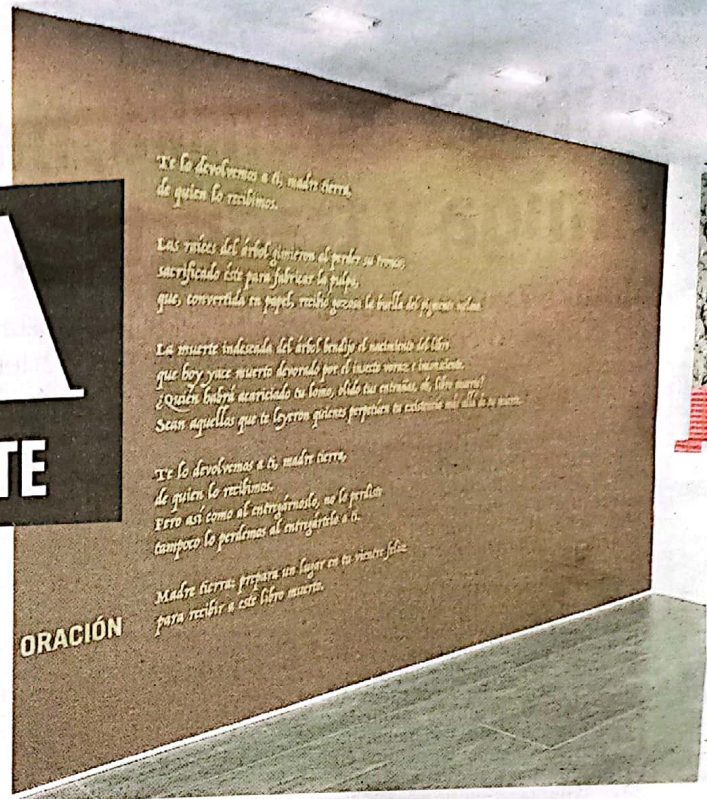 A
TE
Te lo devolvemos a ti, madre tierra,
de quien lo recibimos.
Las raíces del árbol gimieron al perder su tronco,
sacrificado éste para fabricar la pulpa,
que, convertida en papel, recibió gozosa la huella del
La muerte indeseada del árbol bendijo el nacimiento del libro
que hoy yace muerto devorado por el insecto voraz e inconsciente.
¿Quién habrá acariciado tu lomo, olido tus entrañas, oh, libro muerto?
Sean aquellos que te leyeron quienes perpetúen tu existencia más allá de
Te lo devolvemos a ti, madre tierra,
de quien lo recibimos.
Pero así como al entregárnoslo, no lo perdiste
tampoco lo perdemos al entregártelo a ti.
Madre tierra: prepara un lugar en tu vientre feliz
para recibir a este libro muerto.
ORACIÓN